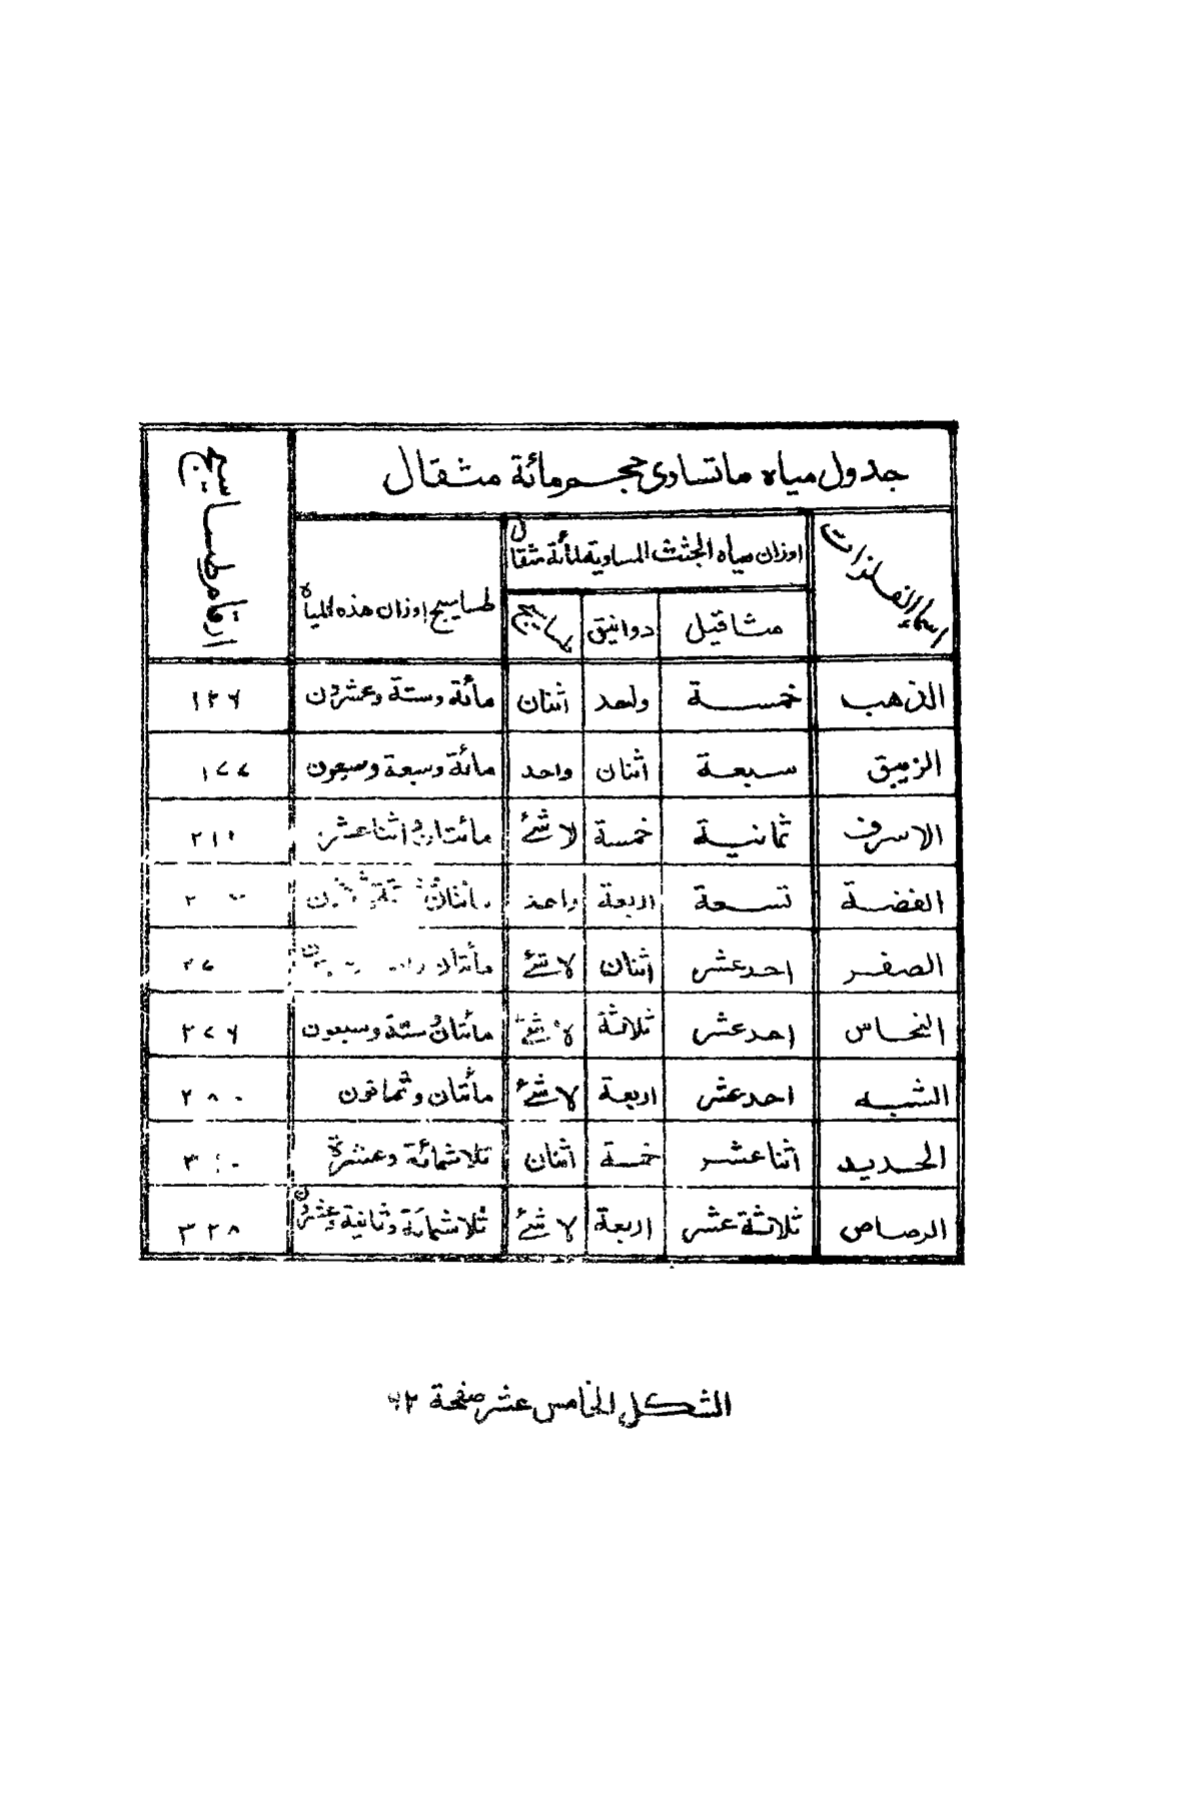 جدول مياه ما تساوى حجم مائة مثقال
ارقام طساسيج
اسماء الفلزات
اوزان مياه الجثث المساوية لمائة مثقال
طساسيج اوزان هذه المياه
مثاقيل دوانيق طساسيج
الذهب خمسة واحد اثنان مائة وستة وعشرون ١٢٦
الزيبق سبعة اثنان واحد مائة وسبعة وسبعون ١٧٧
الاسرف ثمانية خمسة لا شئ مائتان و اثنا عشر ٢١٢
الفضة تسعة اربعة واحد مائتان
الصفر احد عشر اثنان لا شئ مائتان
النحاس احد عشر ثلاثة لا شئ مائتان و ستة وسبعون ٢٧٦
الشبه احد عشر اربعة لا شئ مأتان وثمانون ٢٨٠
الحديد اثنا عشر خمسة اثنان ثلاثمائة وعشرة
الرصاص ثلاثة عشر اربعة لا شئ ثلاثمائة وثمانية وعشرون ٣٢٨
الشكل الخامس عشر صفحة